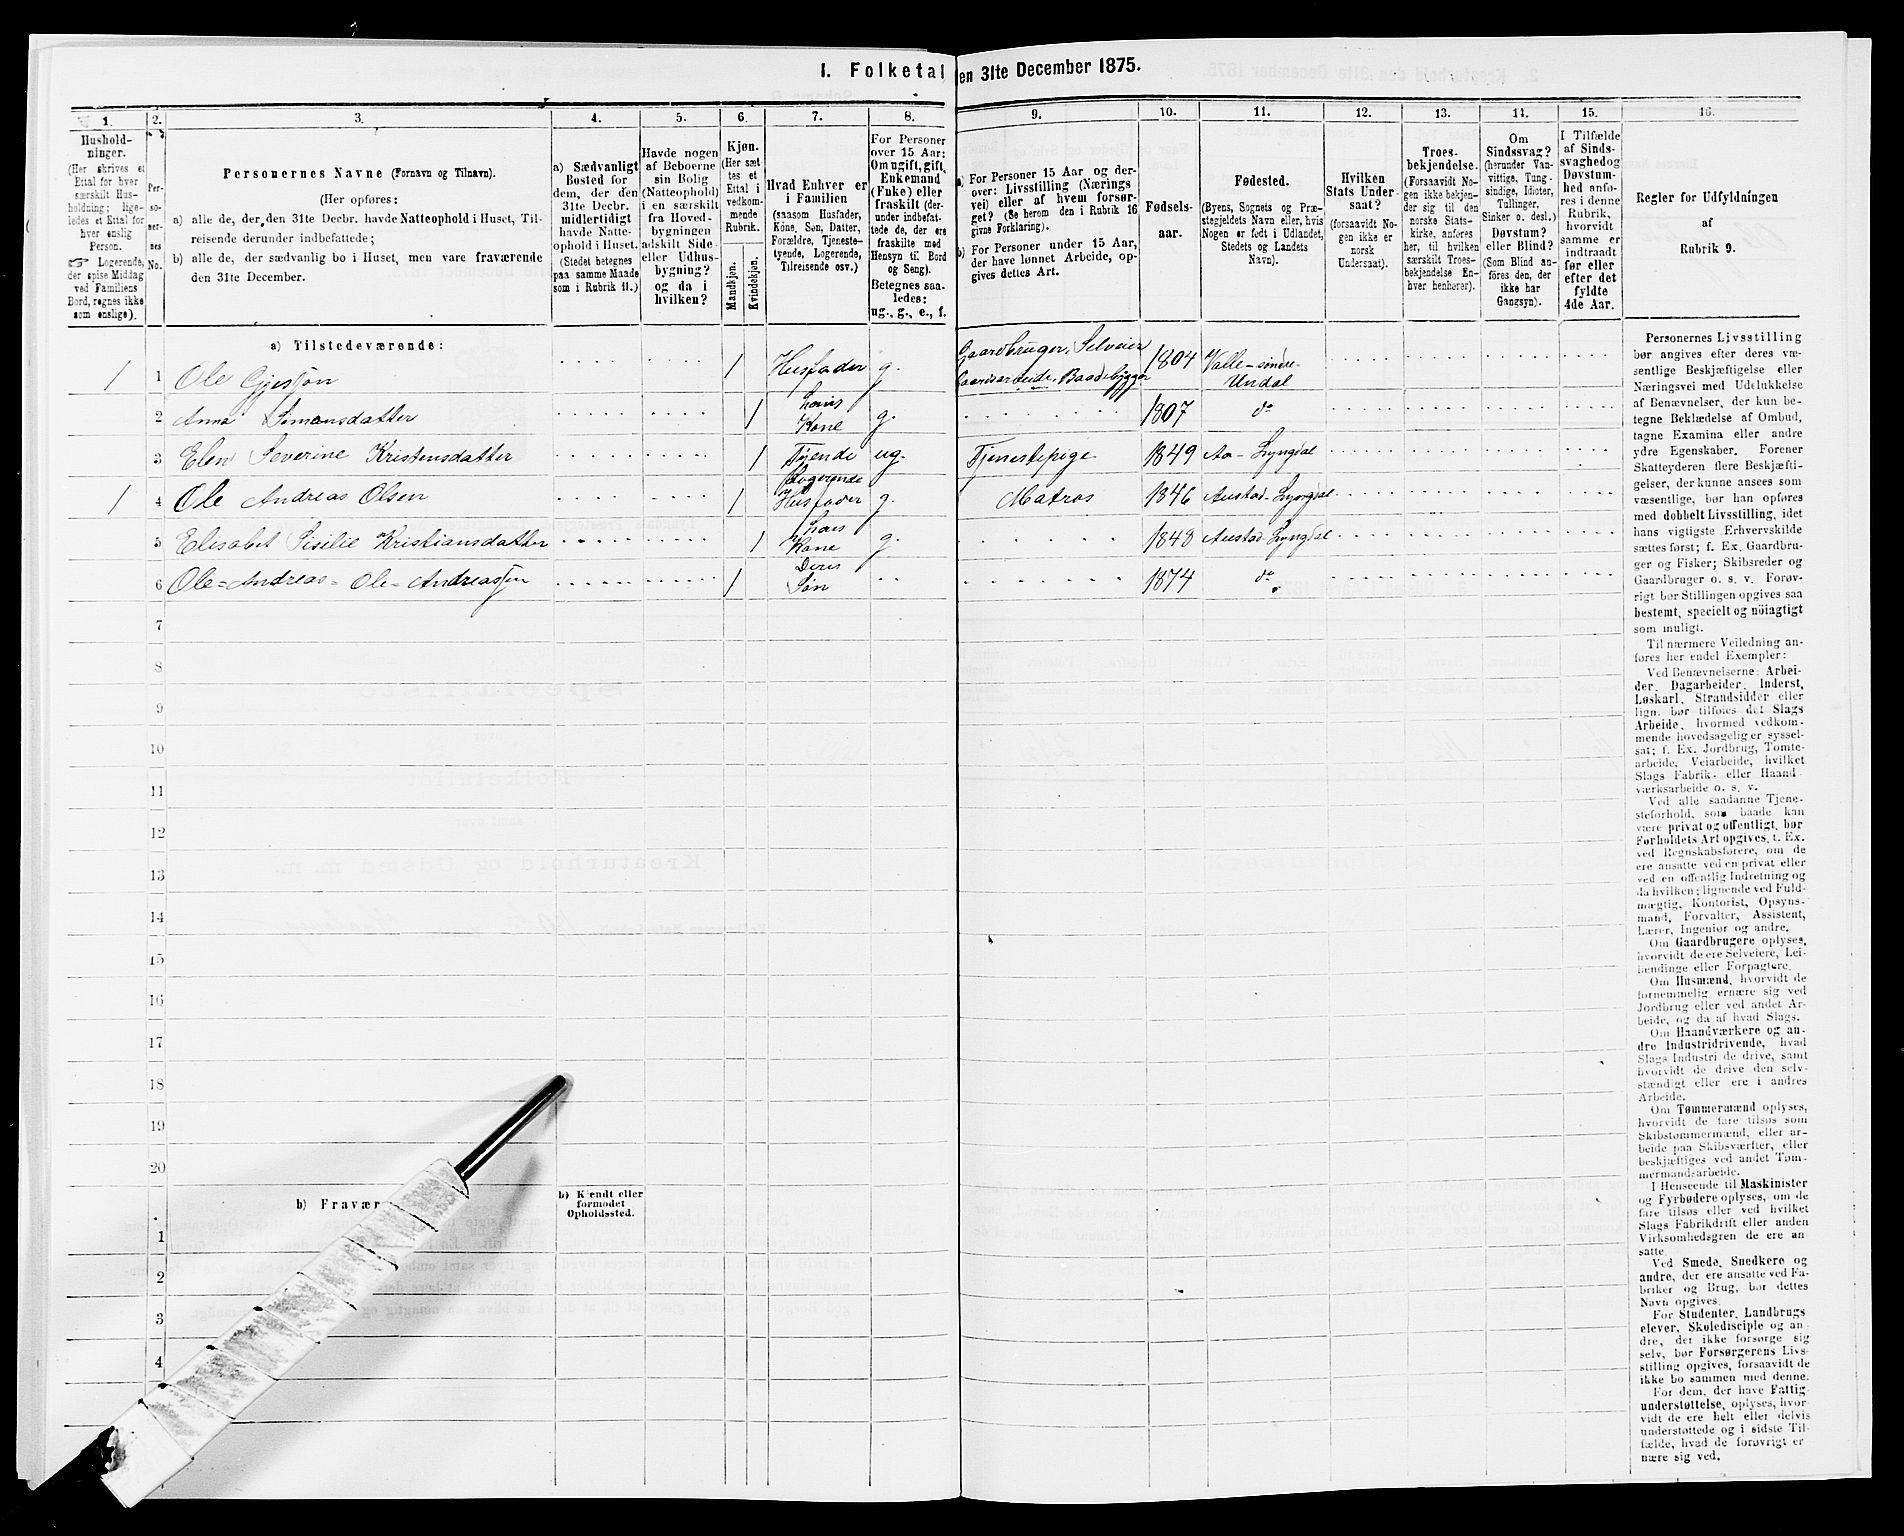 I. Folketal den 31te December 1875.
1.
Hushold-
ninger.
(Her skrives et
Ettal for hver
særskilt Hus-
holdning; lige-
ledes et Ettal for
hver enslig
Person.
☞ Logerende,
der spise Middag
ved Familiens
Bord, regnes ikke
som enslige).
2.
Per-
so-
ner-
nes
No.
3.
Personernes Navne (Fornavn og Tilnavn).
(Her opføres:
a) alle de, der den 31te Decbr. havde Natteophold i Huset, Til-
reisende derunder indbefattede;
b) alle de, der sædvanlig bo i Huset, men vare fraværende
den 31te December.
4.
a) Sædvanligt
Bosted for
dem, der den
31te Decbr.
midlertidigt
havde Natte-
ophold i Huset.
(Stedet betegnes
paa samme Maade
som i Rubrik 11.)
5.
Havde nogen
af Beboerne
sin Bolig
(Natteophold)
i en særskilt
fra Hoved-
bygningen
adskilt Side-
eller Udhus-
bygning?
og da i
hvilken?
6.
Kjøn.
(Her sæt-
tes et
Ettal i
vedkom-
mende
Rubrik.
Mandkjøn.
Kvindekjøn.
7.
Hvad Enhver er
i Familien
(saasom Husfader,
Kone, Søn, Datter,
Forældre, Tjeneste-
tyende, Logerende,
Tilreisende osv.)
8.
For Personer
over 15 Aar:
Om ugift, gift,
Enkemand
(Enke) eller
fraskilt (der-
under indbefat-
tede de, der ere
fraskilte med
Hensyn til Bord
og Seng).
Betegnes saa-
ledes:
ug., g., e., f.
9.
a) For Personer 15 Aar og der-
over: Livsstilling (Nærings-
vei) eller af hvem forsør-
get? (Se herom den i Rubrik 16
givne Forklaring).
b) For Personer under 15 Aar,
der have lønnet Arbeide, op-
gives dettes Art.
10.
Fødsels-
aar.
11.
Fødested.
(Byens, Sognets og Præ-
stegjeldets Navn eller, hvis
Nogen er født i Udlandet,
Stedets og Landets
Navn).
12.
Hvilken
Stats Under-
saat?
(forsaavidt No-
gen ikke er
norsk
Undersaat).
13.
Troes-
bekjendelse.
(Forsaavidt No-
gen ikke bekjen-
der sig til den
norske Stats-
kirke, anføres
her, til hvilken
særskilt Troes-
bekjendelse En-
hver henhører).
14.
Om
Sindssvag?
(herunder Van-
vittige, Tung-
sindige, Idioter,
Tullinger,
Sinker o. desl.)
Døvstum?
eller Blind?
(Som Blind an-
føres den, der
ikke har
Gangsyn).
15.
I Tilfælde
af Sinds-
svaghed og
Døvstum-
hed anfø-
res i denne
Rubrik,
hvorvidt
samme er
indtraadt
før eller
efter det
fyldte
4de Aar.
16.
Regler for Udfyldningen
af
Rubrik 9.
a) Tilstedeværende:
1 1 Ole Gjessøn 1 Husfader g. Gaardbruger, Selveier Gaardsarbeide, Baadebygger 1804 Valle-søndre-Undal
2 Anna Simonsdatter 1 hans Kone g. 1807 do
3 Elen Severine Kristensdatter 1 Tjende ug. Tjenestepige 1849 Aa-Lyngdal
1 4 Ole Andreas Olsen 1 Logerende og Husfader g. Matros 1846 Austad-Lyngdal
5 Elisabet Sisilie Kristiansdatter 1 hans Kone g. 1843 Austad-Lyngdal
6 Ole=Andreas=Ole=Andreassen 1 Deres Søn 1874 do
7
8
9
10
11
12
13
14
15
16
17
18
19
20
b) Fravær
b) Kjendt eller
formodet
Opholdssted.
1
2
3
4
Personernes Livsstilling
bør angives efter deres væ-
sentlige Beskjæftigelse eller
Næringsvei med Udelukkelse
af Benævnelser, der kun be-
tegne Beklædelse af Ombud,
tagne Examina eller andre
ydre Egenskaber. Forener
Skatteyderen flere Beskjæfti-
gelser, der kunne ansees som
væsentlige, bør han opføres
med dobbelt Livsstilling, idet
hans vigtigste Erhvervskilde
sættes først; f. Ex. Gaardbru-
ger og Fisker; Skibsreder og
Gaardbruger o. s. v. Forøv-
rigt bør Stillingen opgives saa
bestemt, specielt og nøiagtigt
som muligt.
Til nærmere Veiledning an-
føres her endel Exempler:
Ved Benævnelserne: Arbei-
der, Dagarbeider, Inderst,
Løskarl, Strandsidder eller
lign. bør tilføies det Slags
Arbeide, hvormed vedkom-
mende hovedsagelig er syssel-
sat; f. Ex. Jordbrug, Tomte-
arbeide, Veiarbeide, hvilket
Slags Fabrik- eller Haand-
værksarbeide o. s. v.
Ved alle saadanne Tjene-
steforhold, som baade kan
være privat og offentligt, bør
Forholdets Art opgives, t. Ex.
ved Regnskabsførere, om de
ere ansatte ved en privat eller
ved en offentlig Indretning og
da hvilken; lignende ved Fuld-
mægtig, Kontorist, Opsyns-
mand, Forvalter, Assistent,
Lærer, Ingeniør og andre.
Om Gaardbrugere oplyses,
hvorvidt de ere Selveiere, Lei-
lændinge eller Forpagtere.
Om Husmænd, hvorvidt de
fornemmelig ernære sig ved
Jordbrug eller ved andet Ar-
beide, og da af hvad Slags.
Om Haandværkere og an-
dre Industridrivende, hvad
Slags Industri de drive, samt
hvorvidt de drive den selv-
stændigt eller ere i andres
Arbeide.
Om Tømmermænd oplyses,
hvorvidt de fare tilsøs som
Skibstømmermænd, eller ar-
beide paa Skibsværfter, eller
beskjæftiges ved andet Tøm-
mermandsarbeide.
I Henseende til Maskinister
og Fyrbødere oplyses, om de
fare tilsøs eller ved hvilket
Slags Fabrikdrift eller anden
Virksomhedsgren de ere an-
satte.
Ved Smede, Snedkere og
andre, der ere ansatte ved Fa-
briker og Brug, bør dettes
Navn opgives.
For Studenter, Landbrugs-
elever, Skoledisciple og an-
dre, der ikke forsørge sig
selv, bør Forsørgerens Livs-
stilling opgives, forsaavidt de
ikke bo sammen med denne.
For dem, der have Fattig-
understøttelse, oplyses, hvor-
vidt de ere helt eller delvis
understøttede og i sidste Til-
fælde, hvad de forøvrigt er
nære sig ved.